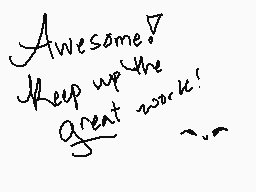 Awesome!
Keep up the
great work!
^.^